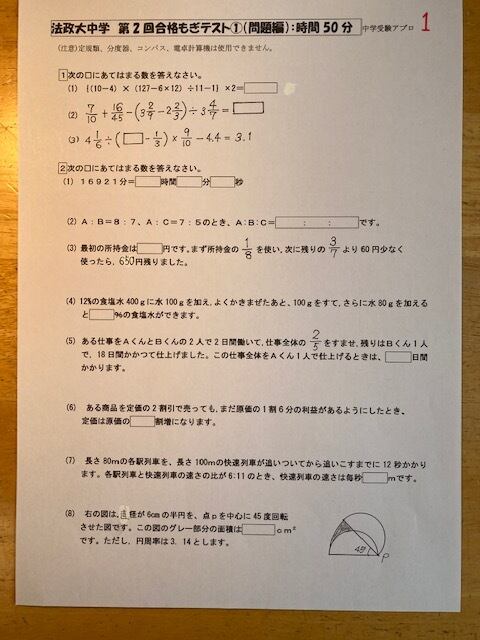 法政大中学 第2回合格もぎテスト①(問題編):時間50分 中学受験アプロ 1
(注意)定規類、分度器、コンパス、電卓計算機は使用できません。
1 次の□にあてはまる数を答えなさい。
(1) {(10-4) × (127-6×12) ÷11-1} ×2=□
(2) 7/10 + 16/45 - (3 2/9 - 2 2/3) ÷ 3 4/7 = □
(3) 4 1/6 ÷ (□ - 1/3) × 9/10 - 4.4 = 3.1
2 次の□にあてはまる数を答えなさい。
(1) 16921分=□時間□分□秒
(2) A:B=8:7、A:C=7:5のとき、A:B:C= : : です。
(3) 最初の所持金は□円です。まず所持金の 1/8 を使い、次に残りの 3/7 より60円少なく
使ったら、650円残りました。
(4) 12%の食塩水400gに水100gを加え、よくかきまぜたあと、100gをすて、さらに水80gを加える
と□%の食塩水ができます。
(5) ある仕事をAくんとBくんの2人で2日間働いて、仕事全体の 2/5 をすませ、残りはBくん1人
で、18日間かかって仕上げました。この仕事全体をAくん1人で仕上げるときは、□日間
かかります。
(6) ある商品を定価の2割引で売っても、まだ原価の1割6分の利益があるようにしたとき、
定価は原価の□割増になります。
(7) 長さ80mの各駅列車を、長さ100mの快速列車が追いついてから追いこすまでに12秒かかり
ます。各駅列車と快速列車の速さの比が6:11のとき、快速列車の速さは毎秒□mです。
(8) 右の図は、直径が6cmの半円を、点pを中心に45度回転
させた図です。この図のグレー部分の面積は□cm²
です。ただし、円周率は3.14とします。
45°
P